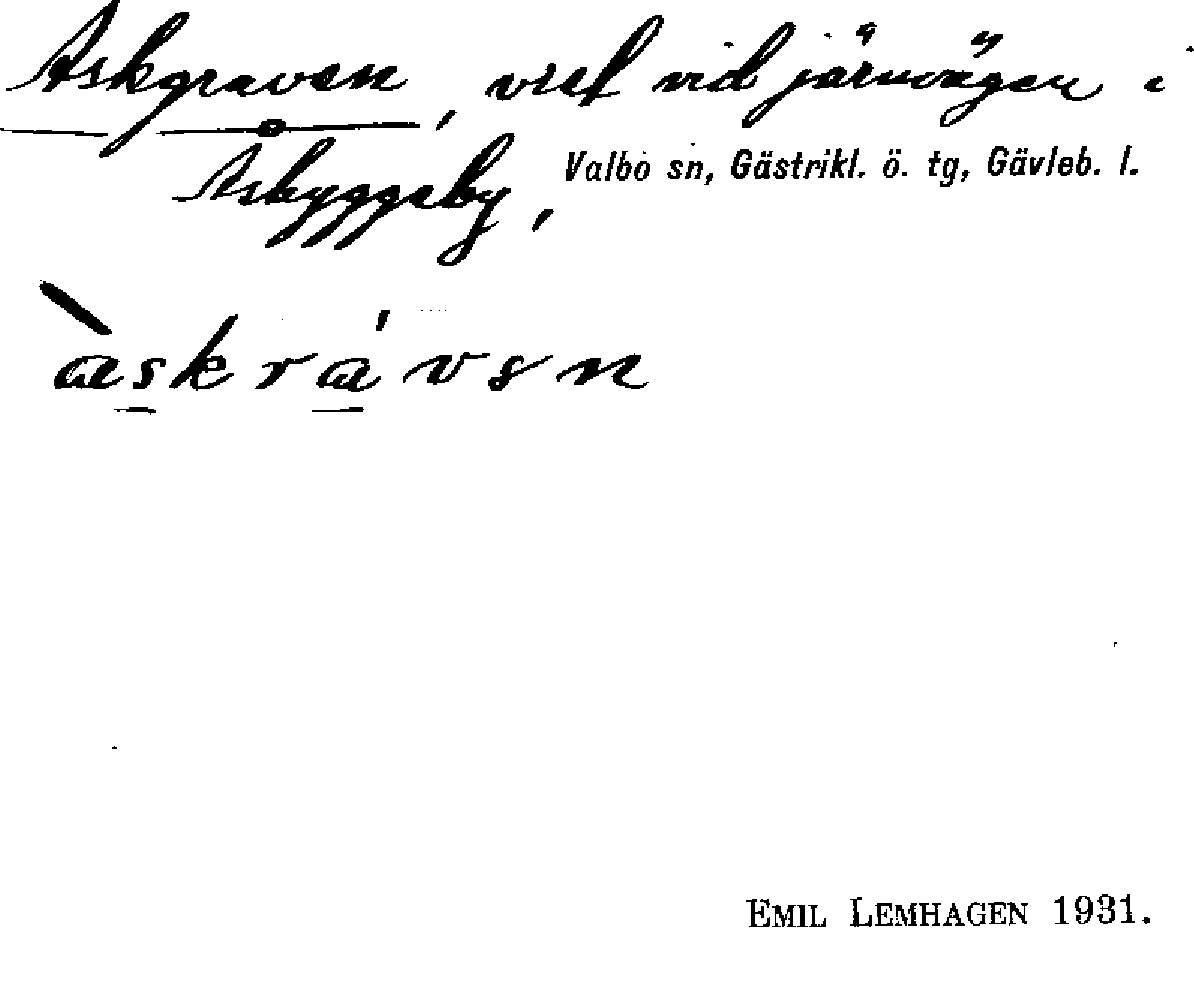 Askgraven, vret vid järnvägen i
Askyggeby, Valbo sn, Gästrikl. ö. tg, Gävleb. l.
àskrávsn
EMIL LEMHAGEN 1931.